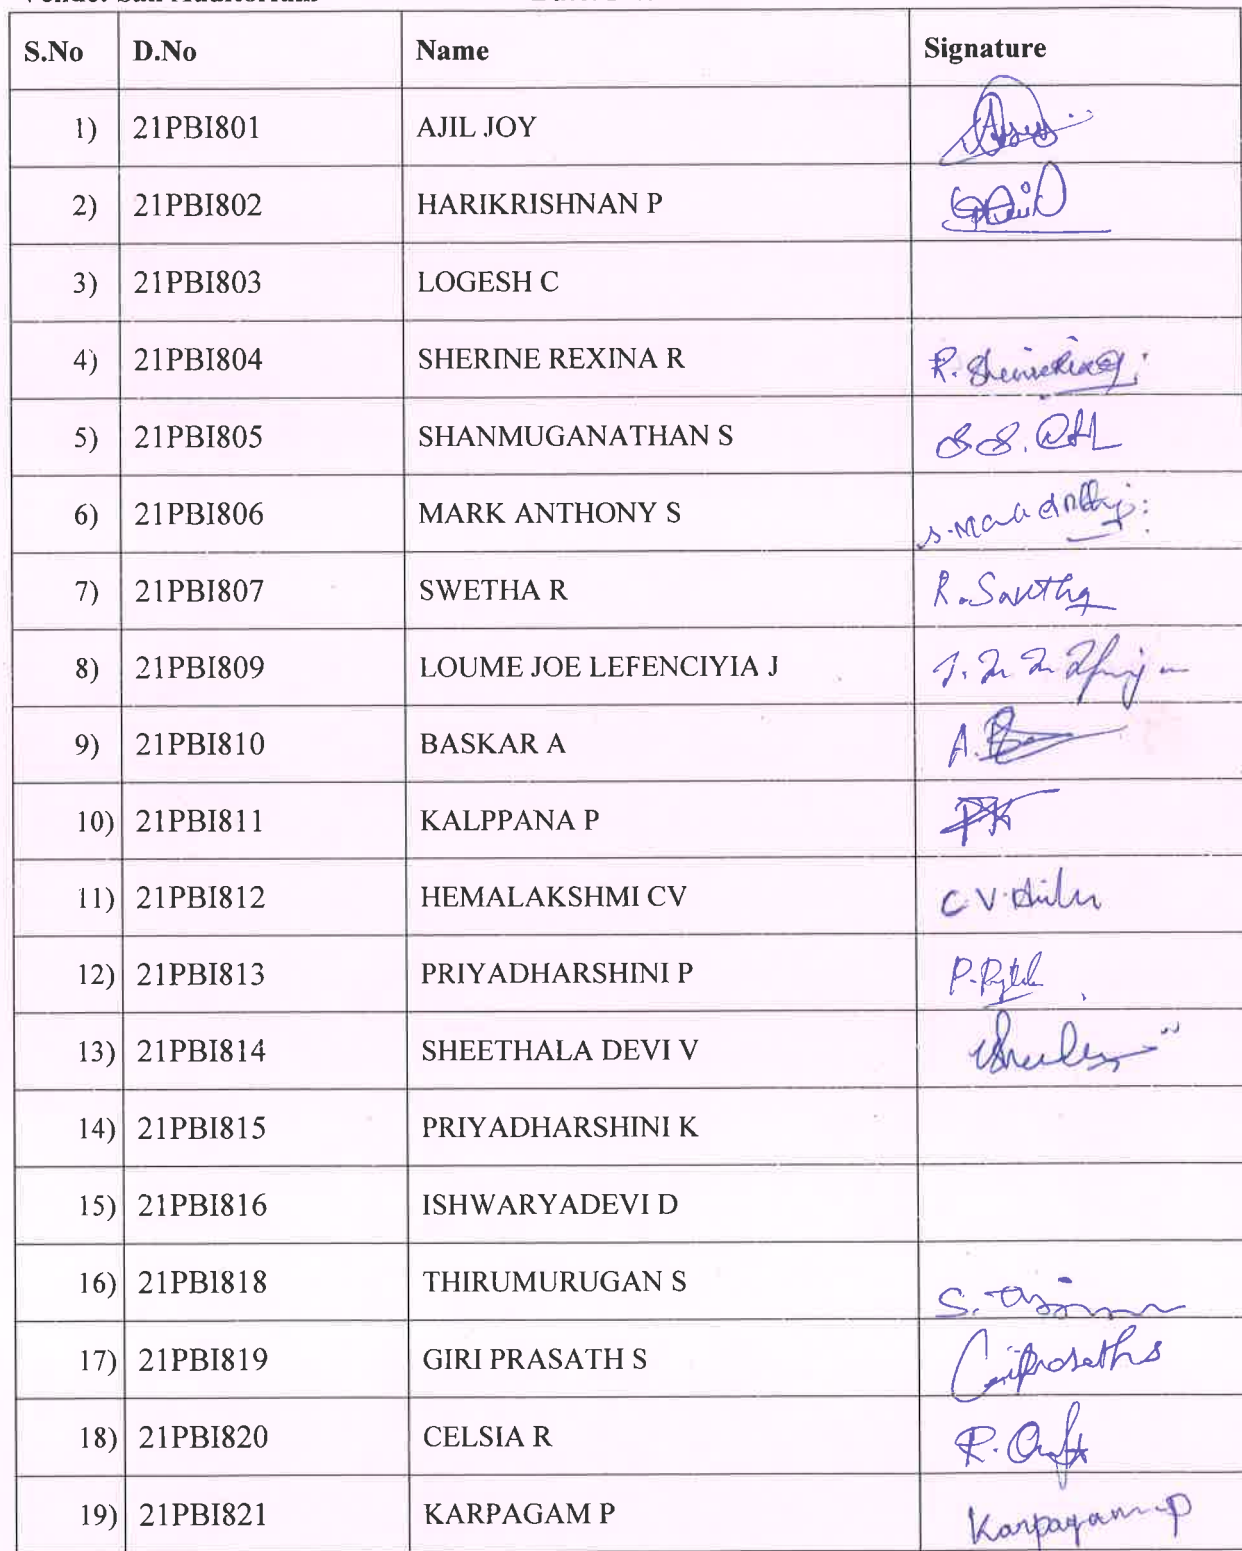 S.No D.No Name Signature
1) 21PBI801 AJIL JOY
2) 21PBI802 HARIKRISHNAN P
3) 21PBI803 LOGESH C
4) 21PBI804 SHERINE REXINA R R.
5) 21PBI805 SHANMUGANATHAN S S.S.
6) 21PBI806 MARK ANTHONY S
7) 21PBI807 SWETHA R R. Swetha
8) 21PBI809 LOUME JOE LEFENCIYIA J J.
9) 21PBI810 BASKAR A A.
10) 21PBI811 KALPPANA P PK
11) 21PBI812 HEMALAKSHMI CV C V
12) 21PBI813 PRIYADHARSHINI P P.
13) 21PBI814 SHEETHALA DEVI V
14) 21PBI815 PRIYADHARSHINI K
15) 21PBI816 ISHWARYADEVI D
16) 21PBI818 THIRUMURUGAN S S.
17) 21PBI819 GIRI PRASATH S Giriprasath S
18) 21PBI820 CELSIA R R.
19) 21PBI821 KARPAGAM P Karpagam P